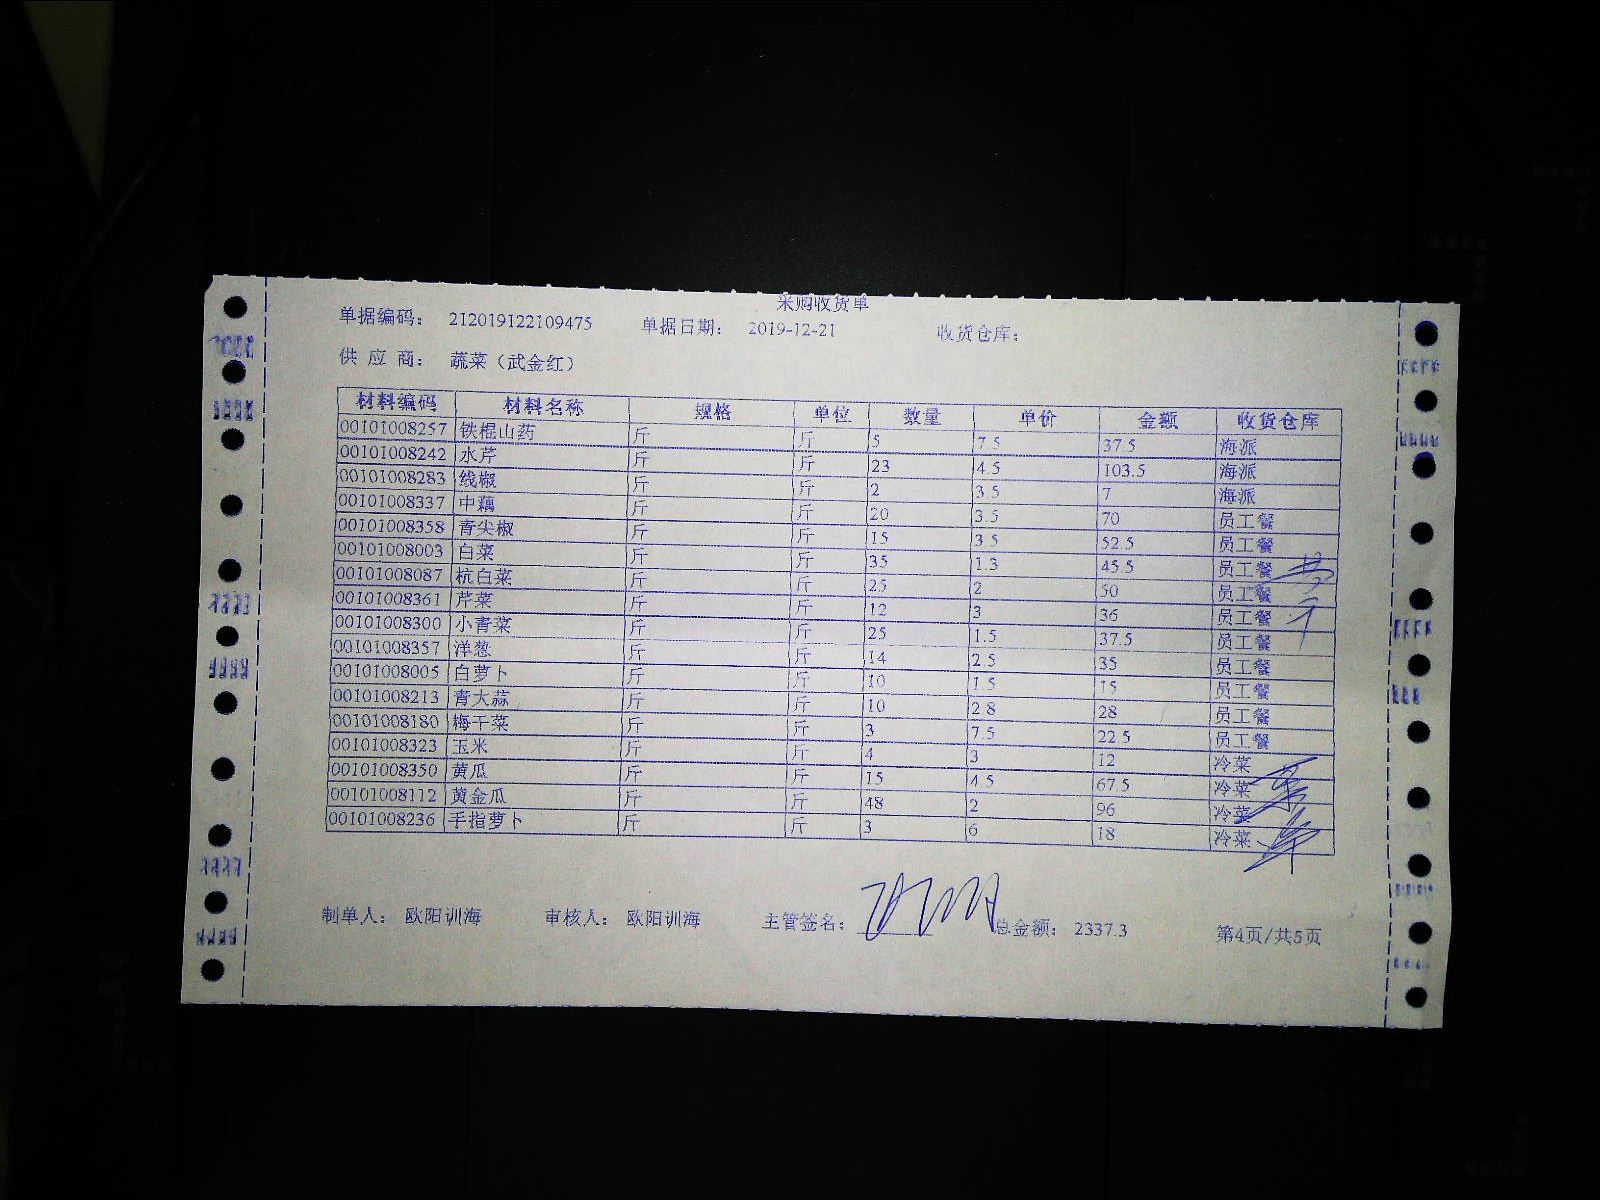 采购收货单
单据编码： 212019122109475 单据日期： 2019-12-21 收货仓库：
供 应 商： 蔬菜（武金红）
材料编码 材料名称 规格 单位 数量 单价 金额 收货仓库
00101008257 铁棍山药 斤 斤 5 7.5 37.5 海派
00101008242 水芹 斤 斤 23 4.5 103.5 海派
00101008283 线椒 斤 斤 2 3.5 7 海派
00101008337 中藕 斤 斤 20 3.5 70 员工餐
00101008358 青尖椒 斤 斤 15 3.5 52.5 员工餐
00101008003 白菜 斤 斤 35 1.3 45.5 员工餐
00101008087 杭白菜 斤 斤 25 2 50 员工餐
00101008361 芹菜 斤 斤 12 3 36 员工餐
00101008300 小青菜 斤 斤 25 1.5 37.5 员工餐
00101008357 洋葱 斤 斤 14 2.5 35 员工餐
00101008005 白萝卜 斤 斤 10 1.5 15 员工餐
00101008213 青大蒜 斤 斤 10 2.8 28 员工餐
00101008180 梅干菜 斤 斤 3 7.5 22.5 员工餐
00101008323 玉米 斤 斤 4 3 12 冷菜
00101008350 黄瓜 斤 斤 15 4.5 67.5 冷菜
00101008112 黄金瓜 斤 斤 48 2 96 冷菜
00101008236 手指萝卜 斤 斤 3 6 18 冷菜
制单人： 欧阳训海 审核人： 欧阳训海 主管签名： 总金额： 2337.3 第4页/共5页